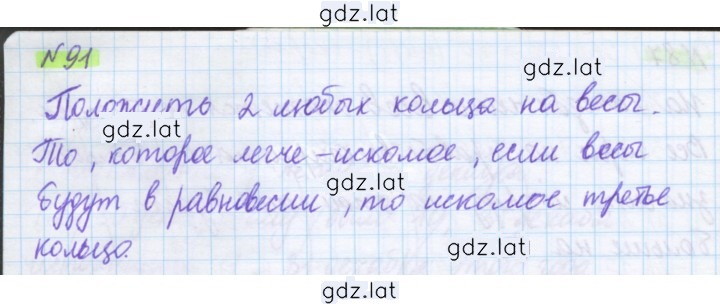 gdz.lat
№91
gdz.lat
Положить 2 любых кольца на весы.
gdz.lat
То, которое легче – искомое, если весы
gdz.lat
будут в равновесии, то искомое третье
кольцо.
gdz.lat
gdz.lat